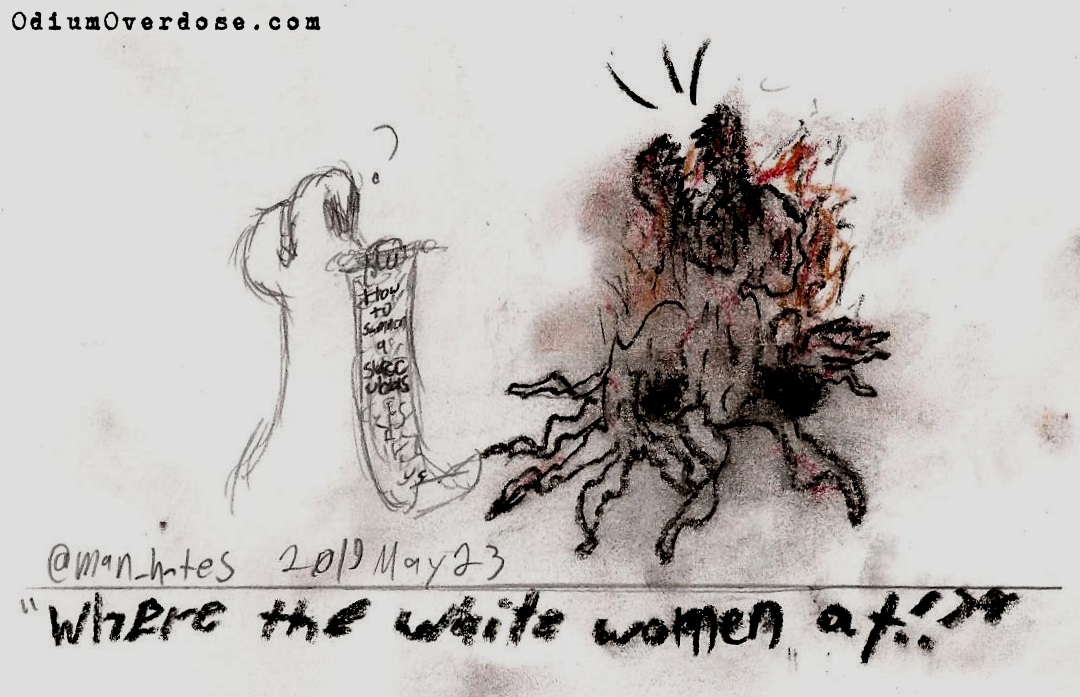 OdiumOverdose.com
?
How
to
summon
a
succ
ubus
@man_hates 2019 May 23
"Where the white women at!?"